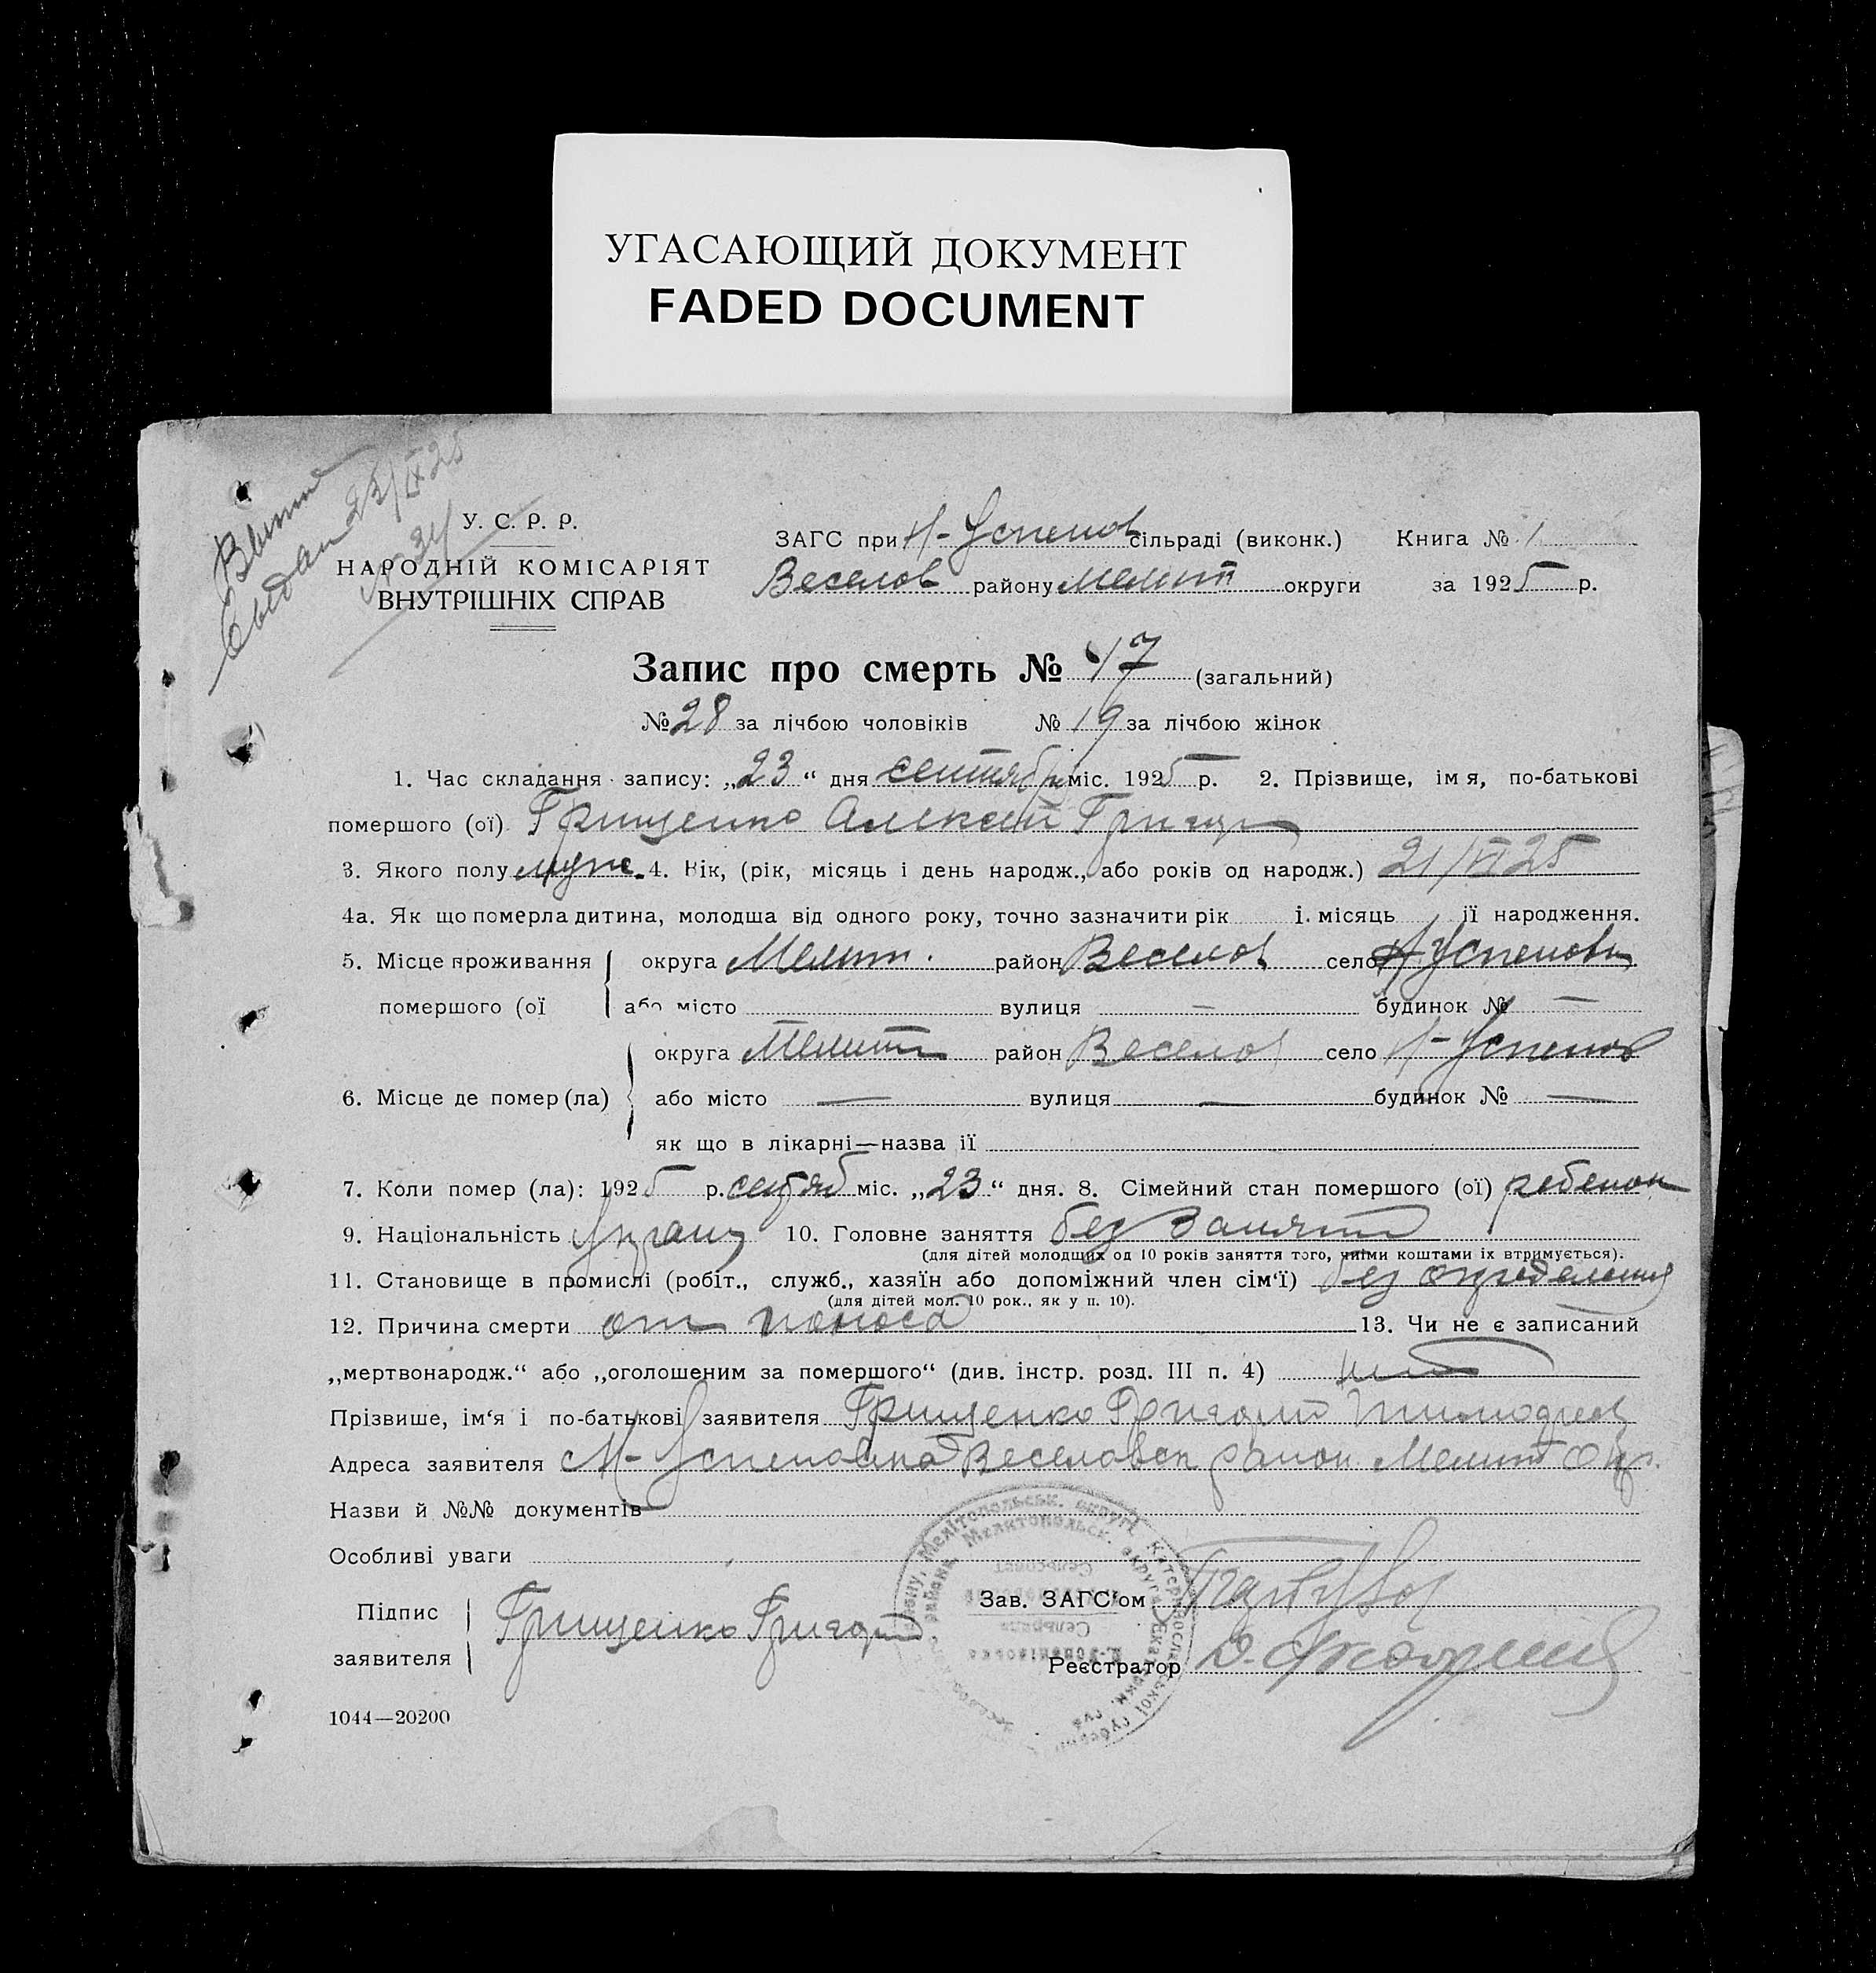 УГАСАЮЩИЙ ДОКУМЕНТ
FADED DOCUMENT
23/IX 25
№ 34
У. С. Р. Р.
НАРОДНІЙ КОМІСАРІЯТ
ВНУТРІШНІХ СПРАВ
ЗАГС при Н-Успенов сільраді (виконк.) Книга № 1
Веселов району Мелит округи за 1925 р.
Запис про смерть № 47 (загальний)
№ 28 за лічбою чоловіків № 19 за лічбою жінок
1. Час складання запису: „23“ дня сентября міс. 1925 р. 2. Прізвище, імя, по-батькові
помершого (ої) Грищенко Алексей Григор
3. Якого полу муж. 4. Вік, (рік, місяць і день народж., або років од народж.) 21/VI 25
4а. Як що померла дитина, молодша від одного року, точно зазначити рік і. місяць її народження.
5. Місце проживання округа Мелит. район Веселов село Н Успеновк
помершого (ої або місто вулиця — будинок № —
округа Мелит район Веселов село Н-Успенов
6. Місце де помер (ла) або місто — вулиця — будинок № —
як що в лікарні—назва її
7. Коли помер (ла): 1925 р. сентяб міс. „23“ дня. 8. Сімейний стан помершого (ої) ребенок
9. Національність Украин 10. Головне заняття без занятий
(для дітей молодших од 10 років заняття того, чиїми коштами їх втримується).
11. Становище в промислі (робіт., служб., хазяїн або допоміжний член сім'ї) без определения
(для дітей мол. 10 рок., як у п. 10).
12. Причина смерти от поноса 13. Чи не є записаний
„мертвонародж.“ або „оголошеним за помершого“ (див. інстр. розд. III п. 4) нет
Прізвише, ім'я і по-батькові заявителя Грищенко Григорий
Адреса заявителя Н-Успеновка Веселовск район Мелит Окр.
Назви й №№ документів
Особливі уваги
Підпис
заявителя Грищенко Григорий
Зав. ЗАГС'ом
Реєстратор
1044—20200